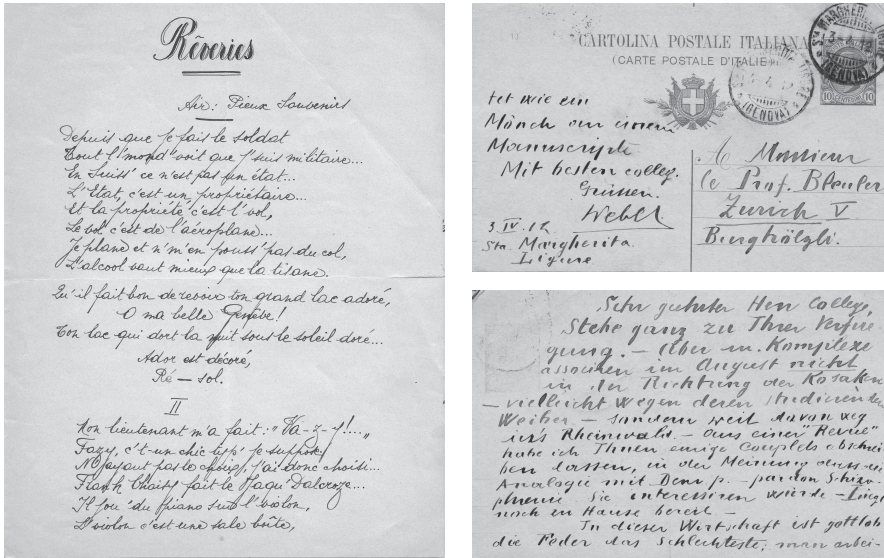 Rêveries
Air: Pieux Souvenirs
Depuis que je fais le soldat
Tout l'mond' voit que j'suis militaire...
En Suiss' ce n'est pas un état...
L'Etat, c'est un, propriétaire...
Et la propriété c'est l'vol,
Le vol c'est de l'aéroplane...
Je plane et n'm'en pouss' pas du col,
L'alcool vaut mieux que la tisane.
Qu'il fait bon de revoir ton grand lac adoré,
O ma belle Genève!
Ton lac qui dort la nuit sous le soleil doré...
Ador est décoré,
Ré - sol.
II
Mon lieutenant m'a fait: "Va-z-y!..."
Fazy, c't-un chic typ' je suppos'
N'ayant pas le choix, j'ai donc choisi...
Frank Choisy fait le Jaqu' Dalcroze...
Il jou' du piano sur l'violon,
L'violon c'est une sale boîte,
CARTOLINA POSTALE ITALIANA
(CARTE POSTALE D'ITALIE)
Sta MARGHERITA LIGURE
3-4-12
(GENOVA)
10 CENTESIMI 10
tet wie ein
Mönch an einem
Manuscripte
Mit besten colleg.
Grüssen
Weber
3.IV.12
Sta. Margherita
Ligure
A Monsieur
le Prof. Bleuler
Zurich V
Burghölzli.
Sehr geehrter Herr College,
Stehe ganz zu Ihrer Verfü-
gung. - Aber m. Komplexe
associren im August nicht
in der Richtung der Kosaken
- vielleicht wegen deren studierenden
Weiber - sondern weit davon weg
in's Rheinwald. - Aus einer "Revue"
habe ich Ihnen einige Couplets abschrei-
ben lassen, in der Meinung dass die
Analogie mit Dem. p. - pardon Schizo-
phrenie Sie interessiren würde - Liegt
noch zu Hause bereit -
In dieser Wirtschaft ist gottlob
die Feder das Schlechteste: man arbei-